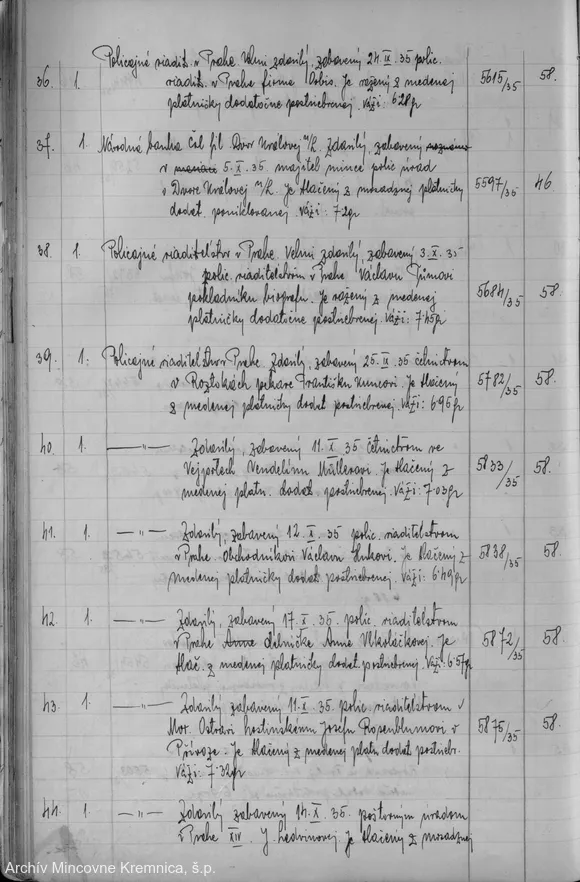 Policajné riadit. v Prahe. Velmi zdarilý, zabavený 24.IX.35 polic.
36. 1. riadit. v Prahe firme Orbis. Je razený z medenej 5615/35 58.
platničky dodatočne postriebrenej. Váži: 6˙28 gr
37. 1. Národná banka Čsl fil. Dvor Králové n/L. Zdarilý, zabavený
v 5.X.35 majitel mince polic. úrad 5597/35 46
v Dvore Královej n/L. Je tlačený z mosadznej platničky
dodat. poniklovanej. Váži: 7˙2 gr
38. 1. Policajné riaditeľstvo v Prahe. Velmi zdarilý, zabavený 3.X.35
polic. riaditelstvom v Prahe Václavu Šímovi
pokladníku biografu. Je razený z medenej 5684/35 58.
platničky dodatočne postriebrenej. Váži: 7˙45 gr
39. 1. Policajné riaditelstvo v Prahe. Zdarilý, zabavený 25.IX.35 četnictvom
v Roztokách pekare Františku Kuncovi. Je tlačený 5782/35 58.
z medenej platničky dodat. postriebrenej. Váži: 6˙95 gr
40. 1. —"— Zdarilý, zabavený 11.X.35 četnictvom ve
Vejprtech Vendelínu Müllerovi. Je tlačený z 5833/35 58.
medenej platn. dodat. postriebrenej. Váži: 7˙03 gr
41. 1. —"— Zdarilý, zabavený 12.X.35 polic. riaditelstvom
v Prahe obchodníkovi Václavu Hukovi. Je tlačený z 5838/35 58.
medenej platničky dodat. postriebrenej. Váži: 6˙49 gr
42. 1. —"— Zdarilý, zabavený 17.X.35. polic. riaditelstvom
v Prahe Anne delničke Anne Vlkoláčkovej. Je 5872/35 58.
tlač. z medenej platničky dodat. postriebrenej. Váži: 6˙57 gr
43. 1. —"— Zdarilý zabavený 11.X.35. polic. riaditelstvom v
Mor. Ostravi hostinskému Josefu Ropenblumovi v 5875/35 58.
Přívoze. Je tlačený z medenej platn. dodat. postriebr.
Váži: 7˙32 gr
44. 1. —"— Zdarilý zabavený 14.X.35. poštovným úradom
v Prahe XIV. J. Hedvinovej. Je tlačený z mosadznej
Archív Mincovne Kremnica, š.p.